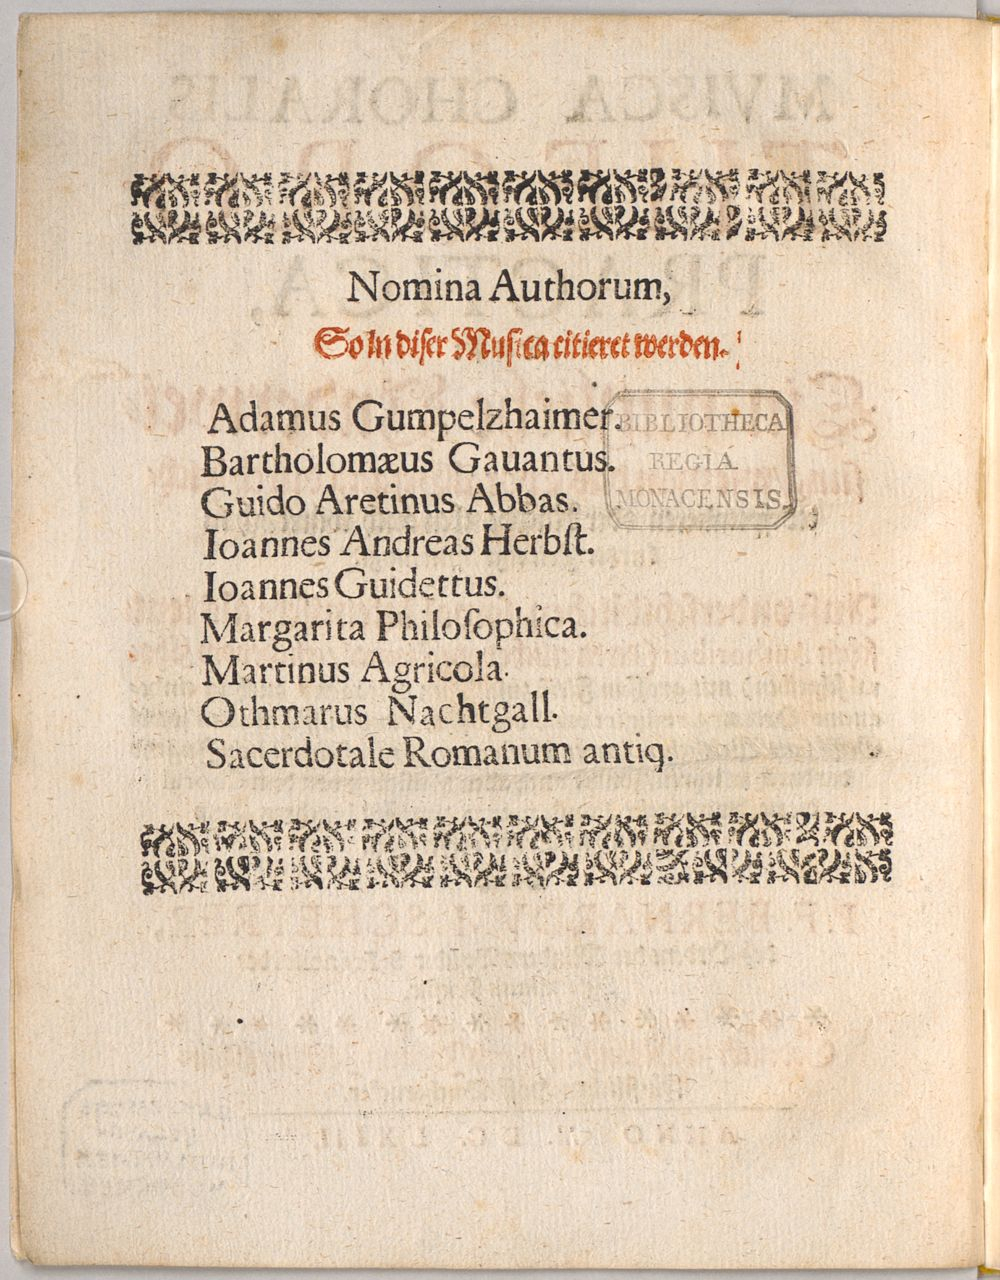 Nomina Authorum,
So in diser Musica citieret werden.
Adamus Gumpelzhaimer.
Bartholomæus Gauantus.
Guido Aretinus Abbas.
Ioannes Andreas Herbſt.
Ioannes Guidettus.
Margarita Philoſophica.
Martinus Agricola.
Othmarus Nachtgall.
Sacerdotale Romanum antiq.
BIBLIOTHECA
REGIA
MONACENSIS.